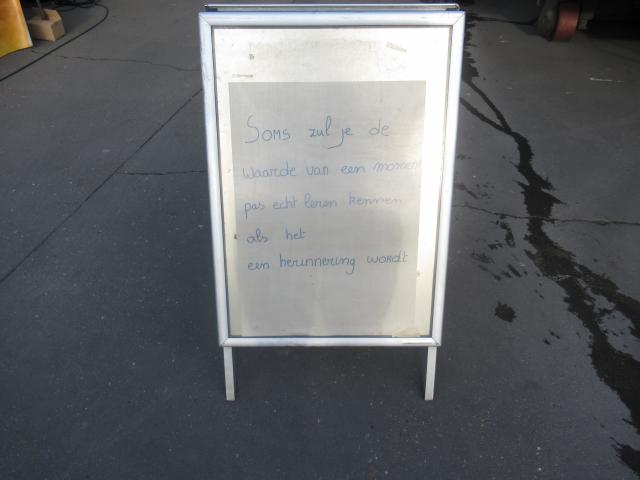 Soms zul je de
waarde van een moment
pas echt leren kennen
als het
een herinnering wordt